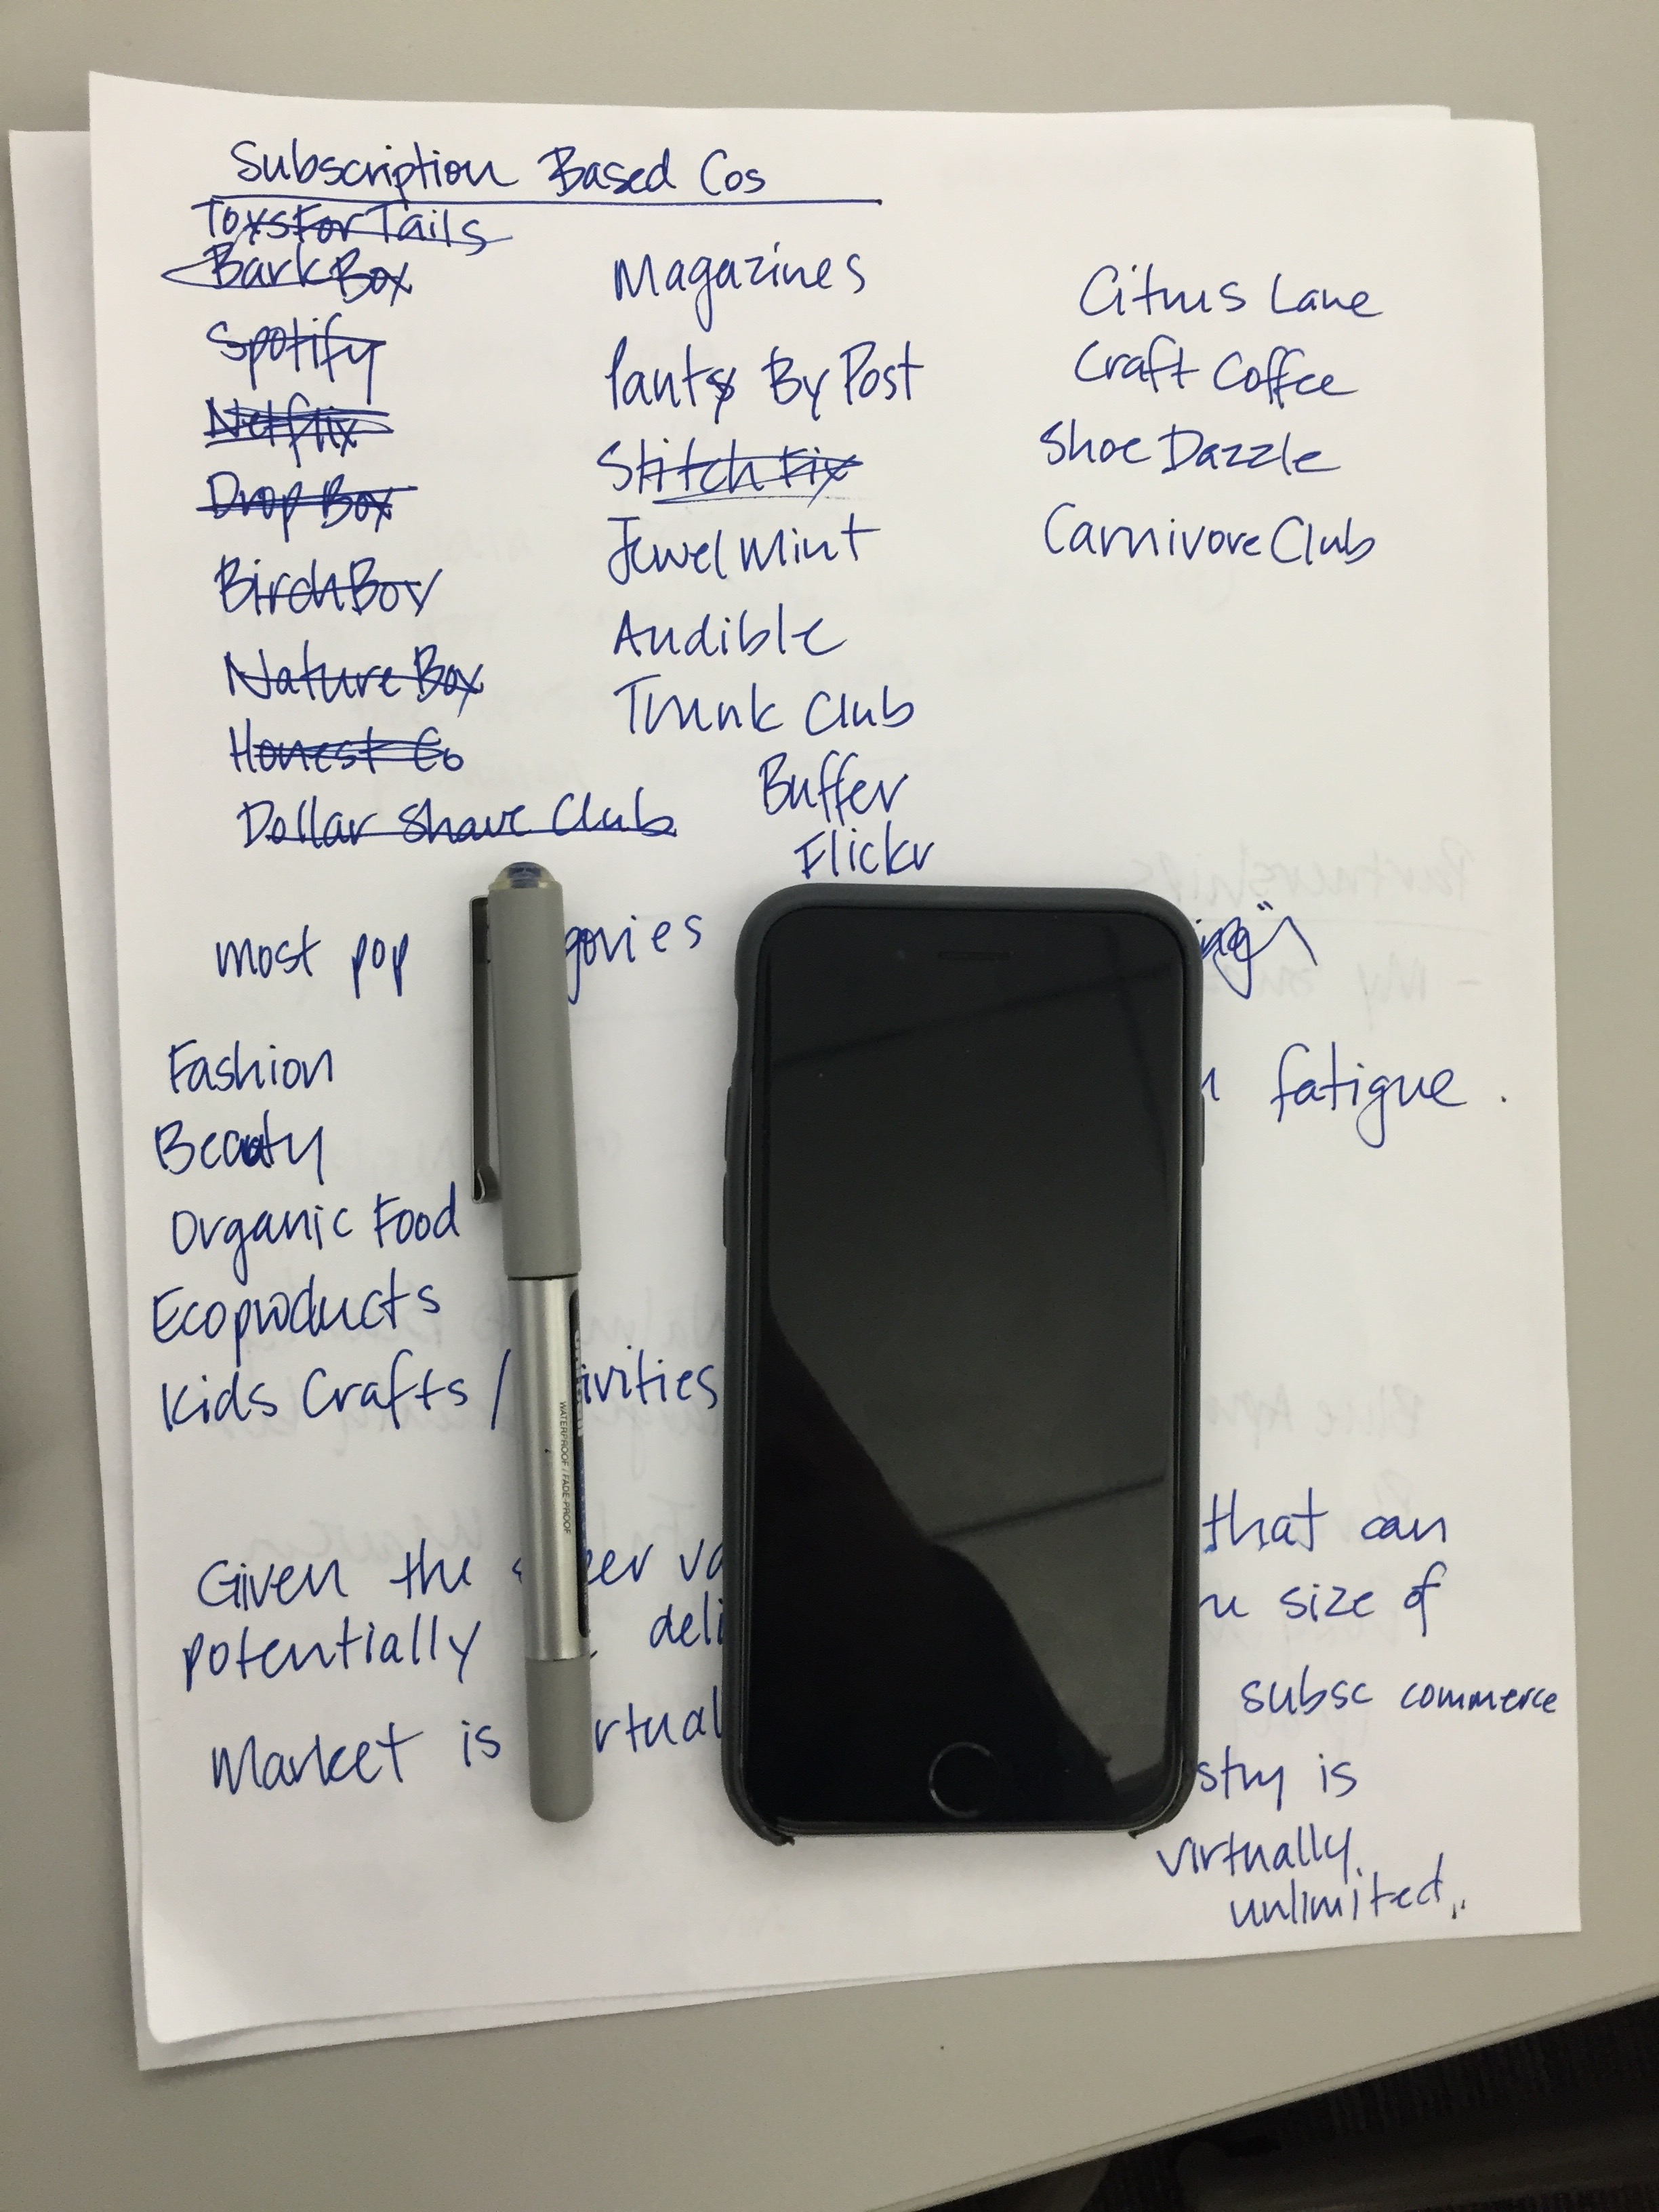 Subscription Based Cos
ToysForTails
BarkBox
Spotify
Netflix
Drop Box
BirchBox
Nature Box
Honest Co
Dollar Shave Club
Magazines
Pants By Post
Stitch Fix
Jewel Mint
Audible
Trunk Club
Buffer
Flickr
Citrus Lane
Craft Coffee
Shoe Dazzle
Carnivore Club
most pop gories
fatigue.
Fashion
Beauty
Organic Food
Ecoproducts
Kids Crafts / ivities
WATERPROOF / FADE-PROOF
Given the that can
potentially deli size of
subsc commerce
Market is rtual stry is
virtually
unlimited